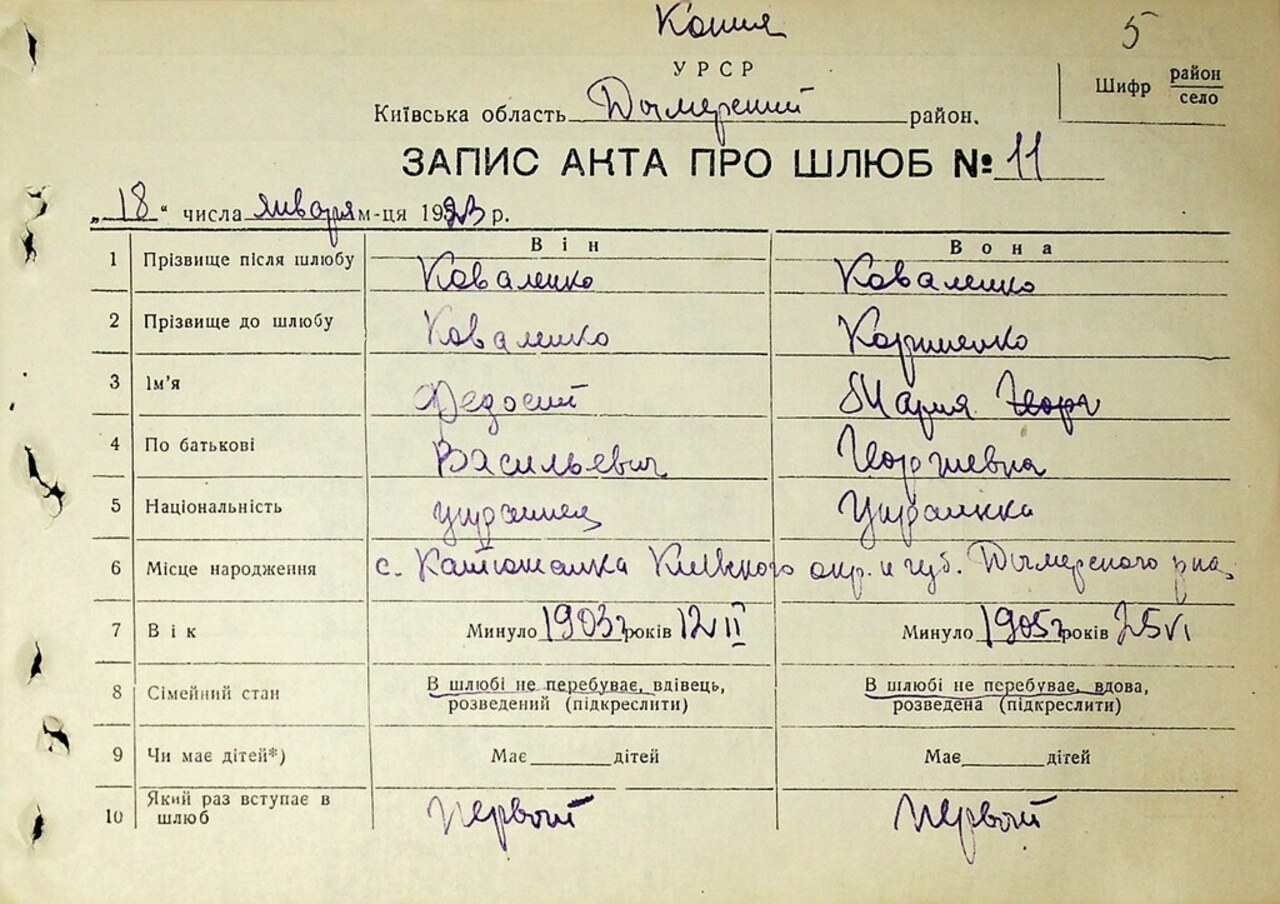 Копия
5
УРСР
Шифр район
село
Київська область Дымерский район.
ЗАПИС АКТА ПРО ШЛЮБ № 11
„18“ числа января м-ця 1923 р.
Він Вона
1 Прізвище після шлюбу Коваленко Коваленко
2 Прізвище до шлюбу Коваленко Корниенко
3 Ім'я Федосий Мария Георг
4 По батькові Васильевич Георгиевна
5 Національність украинец Украинка
6 Місце народження с. Катюжанка Киевского окр. и губ. Дымерского р-на
7 Вік Минуло 1903 г років 12 II Минуло 1905 г років 25 VI
8 Сімейний стан В шлюбі не перебуває, вдівець, В шлюбі не перебуває, вдова,
розведений (підкреслити) розведена (підкреслити)
9 Чи має дітей*) Має дітей Має дітей
10 Який раз вступає в шлюб первый первый